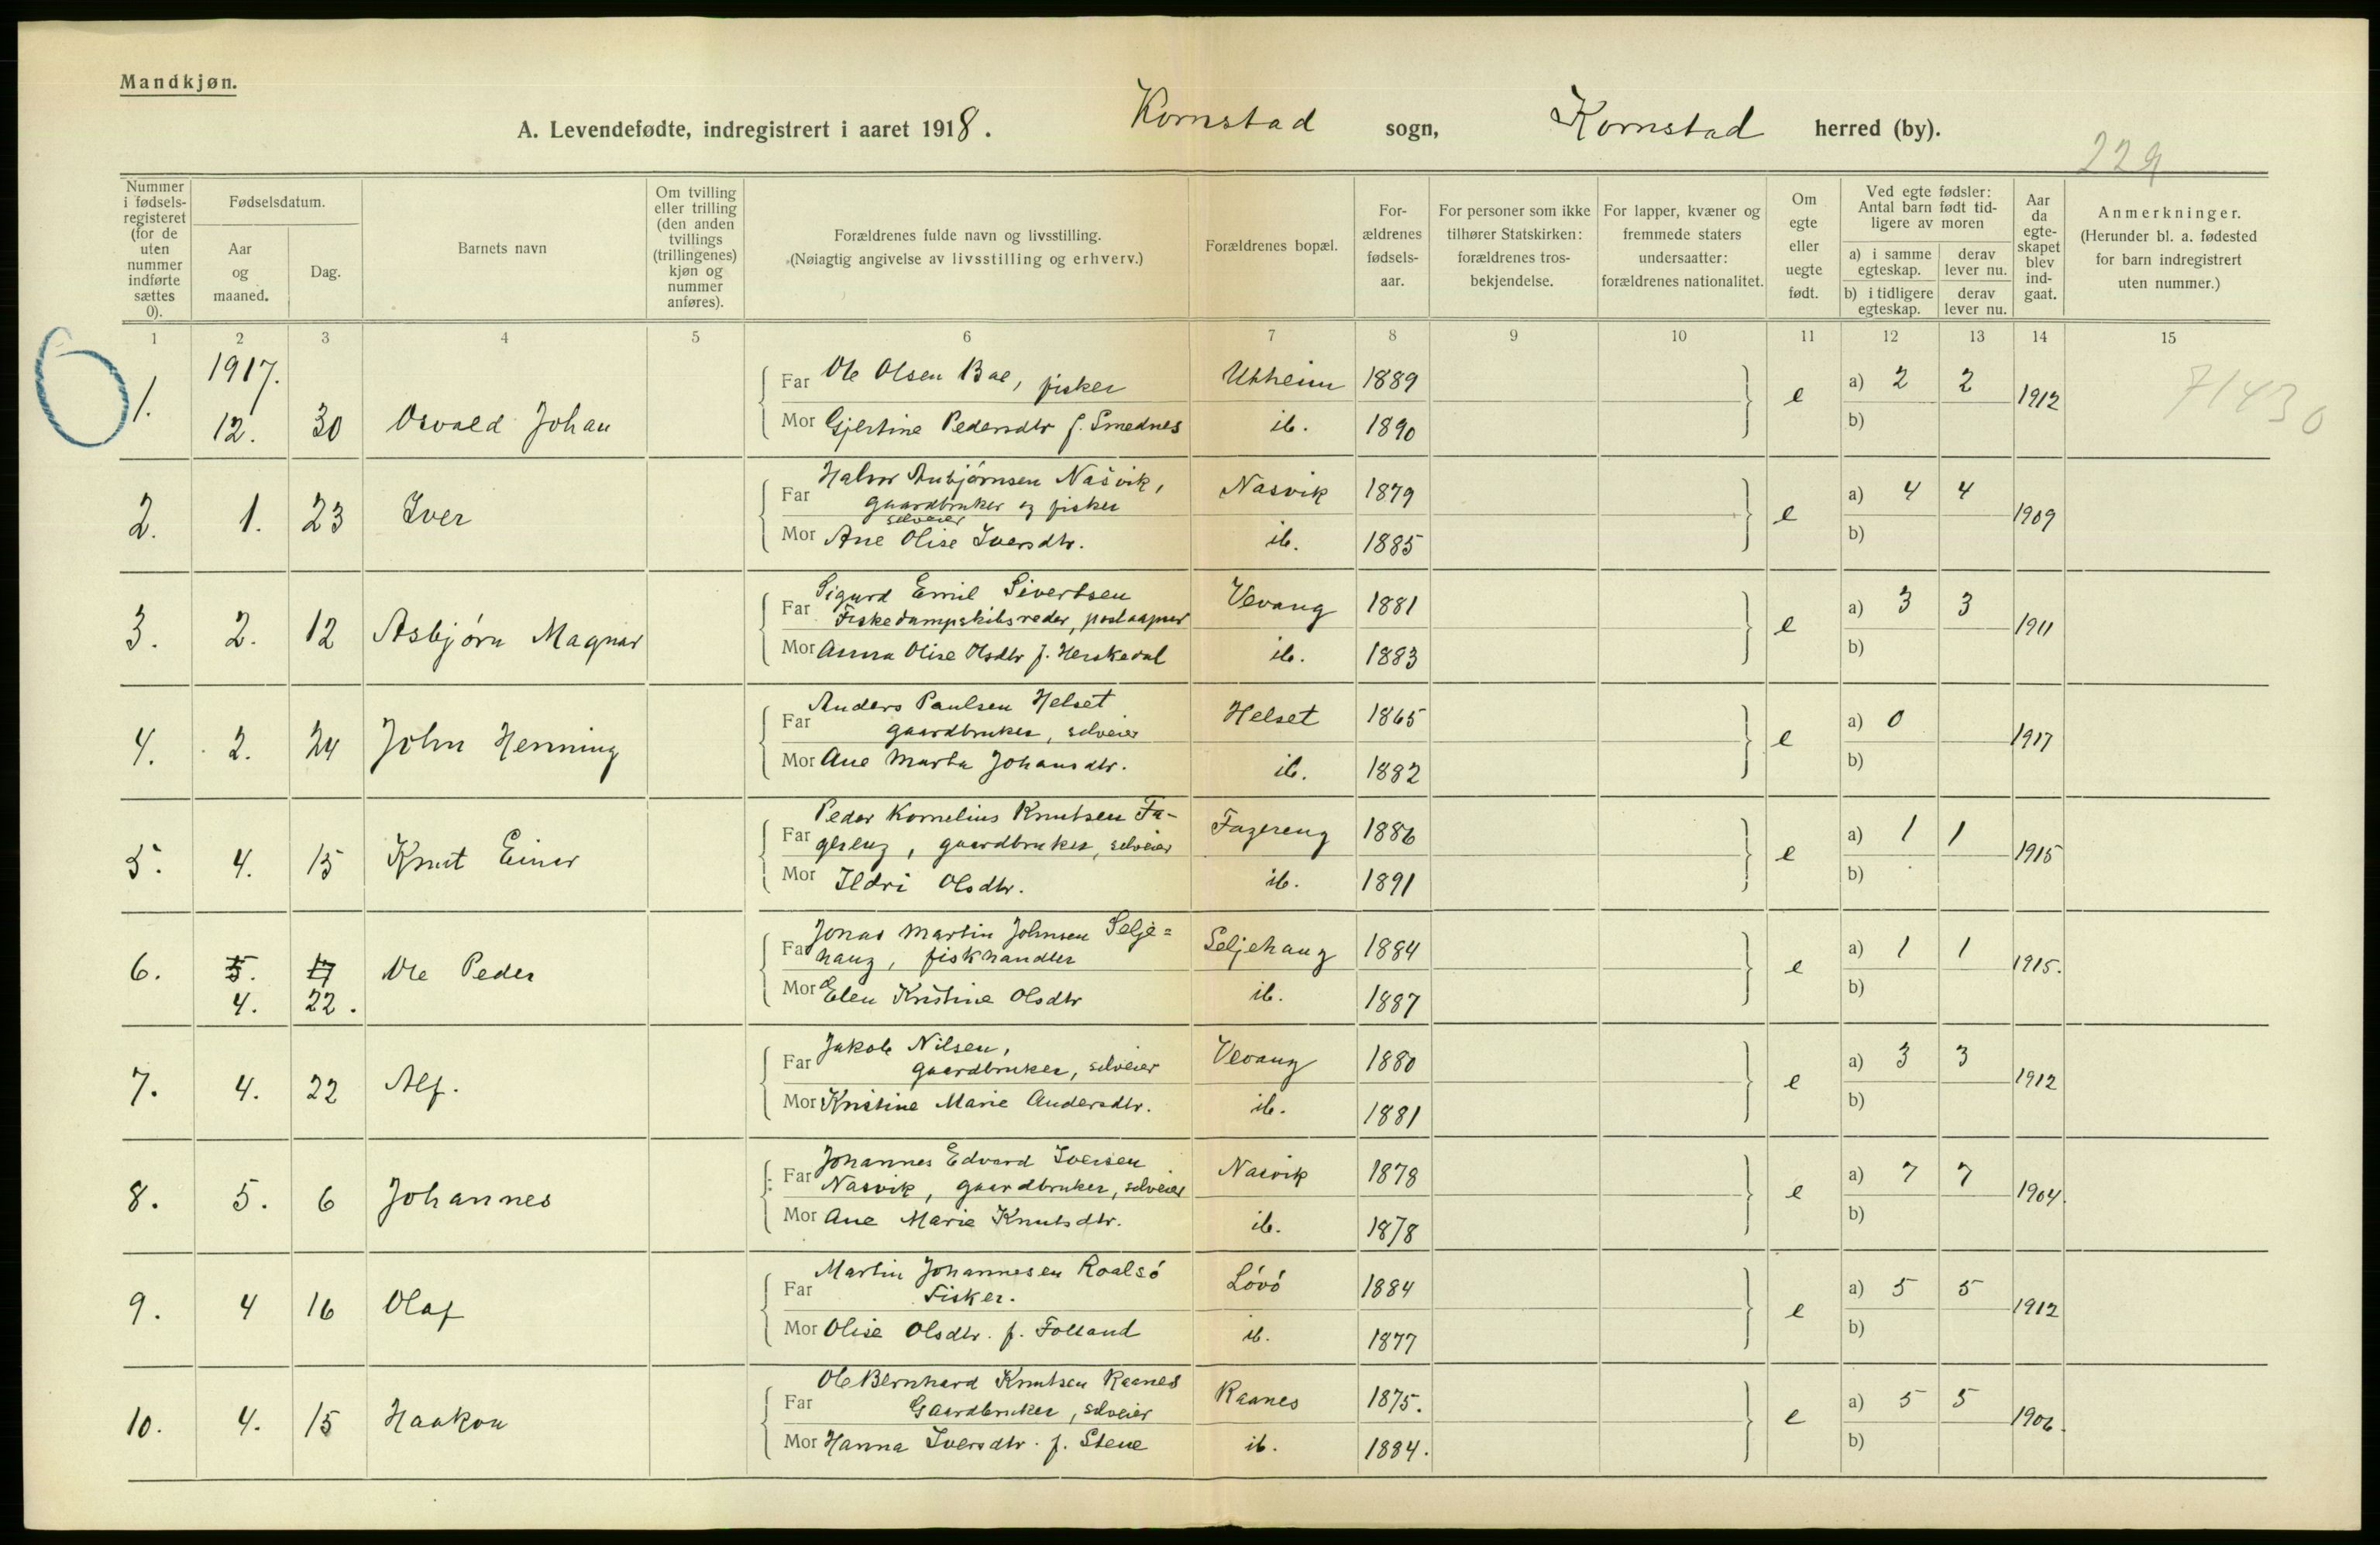 Mandkjøn.
A. Levendefødte, indregistrert i aaret 1918. Kornstad sogn, Kornstad herred (by).
229
Nummer i fødselsregisteret (for de uten nummer indførte sættes 0).
Fødselsdatum.
Aar og maaned.
Dag.
Barnets navn
Om tvilling eller trilling (den anden tvillings (trillingenes) kjøn og nummer anføres).
Forældrenes fulde navn og livsstilling.
(Nøiagtig angivelse av livsstilling og erhverv.)
Forældrenes bopæl.
For-ældrenes fødsels-aar.
For personer som ikke tilhører Statskirken: forældrenes tros-bekjendelse.
For lapper, kvæner og fremmede staters undersaatter: forældrenes nationalitet.
Om egte eller uegte født.
Ved egte fødsler: Antal barn født tid-ligere av moren
a) i samme egteskap. derav lever nu.
b) i tidligere egteskap. derav lever nu.
Aar da egte-skapet blev ind-gaat.
Anmerkninger.
(Herunder bl. a. fødested for barn indregistrert uten nummer.)
1 2 3 4 5 6 7 8 9 10 11 12 13 14 15
1917.
1. 12. 30 Osvald Johan
Far Ole Olsen Bae, fisker Utheim 1889
Mor Gjertine Pedersdtr f. Smednes ib. 1890
e a) 2 2 1912
b)
7143 0
2. 1. 23 Iver
Far Halvor Anbjørnsen Nasvik, Nasvik 1879
gaardbruker og fisker
selveier
Mor Ane Olise Iversdtr. ib. 1885
e a) 4 4 1909
b)
3. 2. 12 Asbjørn Magnar
Far Sigurd Emil Sivertsen Vevang 1881
Fiskedampskibsreder, postaapner
Mor Anna Olise Olsdtr f. Herskedal ib. 1883
e a) 3 3 1911
b)
4. 2. 24 John Henning
Far Anders Paulsen Helset Helset 1865
gaardbruker, selveier
Mor Ane Marta Johansdtr. ib. 1882
e a) 0 1917
b)
5. 4. 15 Knut Einar
Far Peder Kornelius Knutsen Fa- Fagereng 1886
gereng, gaardbruker, selveier
Mor Ildri Olsdtr. ib. 1891
e a) 1 1 1915
b)
6. 5. 17 Ole Peder
4. 22.
Far Jonas Martin Johnsen Selje= Seljehaug 1884
haug, fiskhandler
Mor Elen Kristine Olsdtr ib. 1887
e a) 1 1 1915.
b)
7. 4. 22 Alf.
Far Jakob Nilsen, Vevang 1880
gaardbruker, selveier
Mor Kristine Marie Andersdtr. ib. 1881
e a) 3 3 1912
b)
8. 5. 6 Johannes
Far Johannes Edvard Iversen Nasvik 1878
Nasvik, gaardbruker, selveier
Mor Ane Marie Knutsdtr. ib. 1878
e a) 7 7 1904.
b)
9. 4 16 Olaf
Far Martin Johannesen Roalsó Lóvó 1884
Fisker.
Mor Olise Olsdtr. f. Folland ib. 1877
e a) 5 5 1912
b)
10. 4. 15 Haakon
Far Ole Bernhard Knutsen Raanes Raanes 1875.
Gaardbruker, selveier
Mor Hanna Iversdtr. f. Stene ib. 1884.
e a) 5 5 1906.
b)